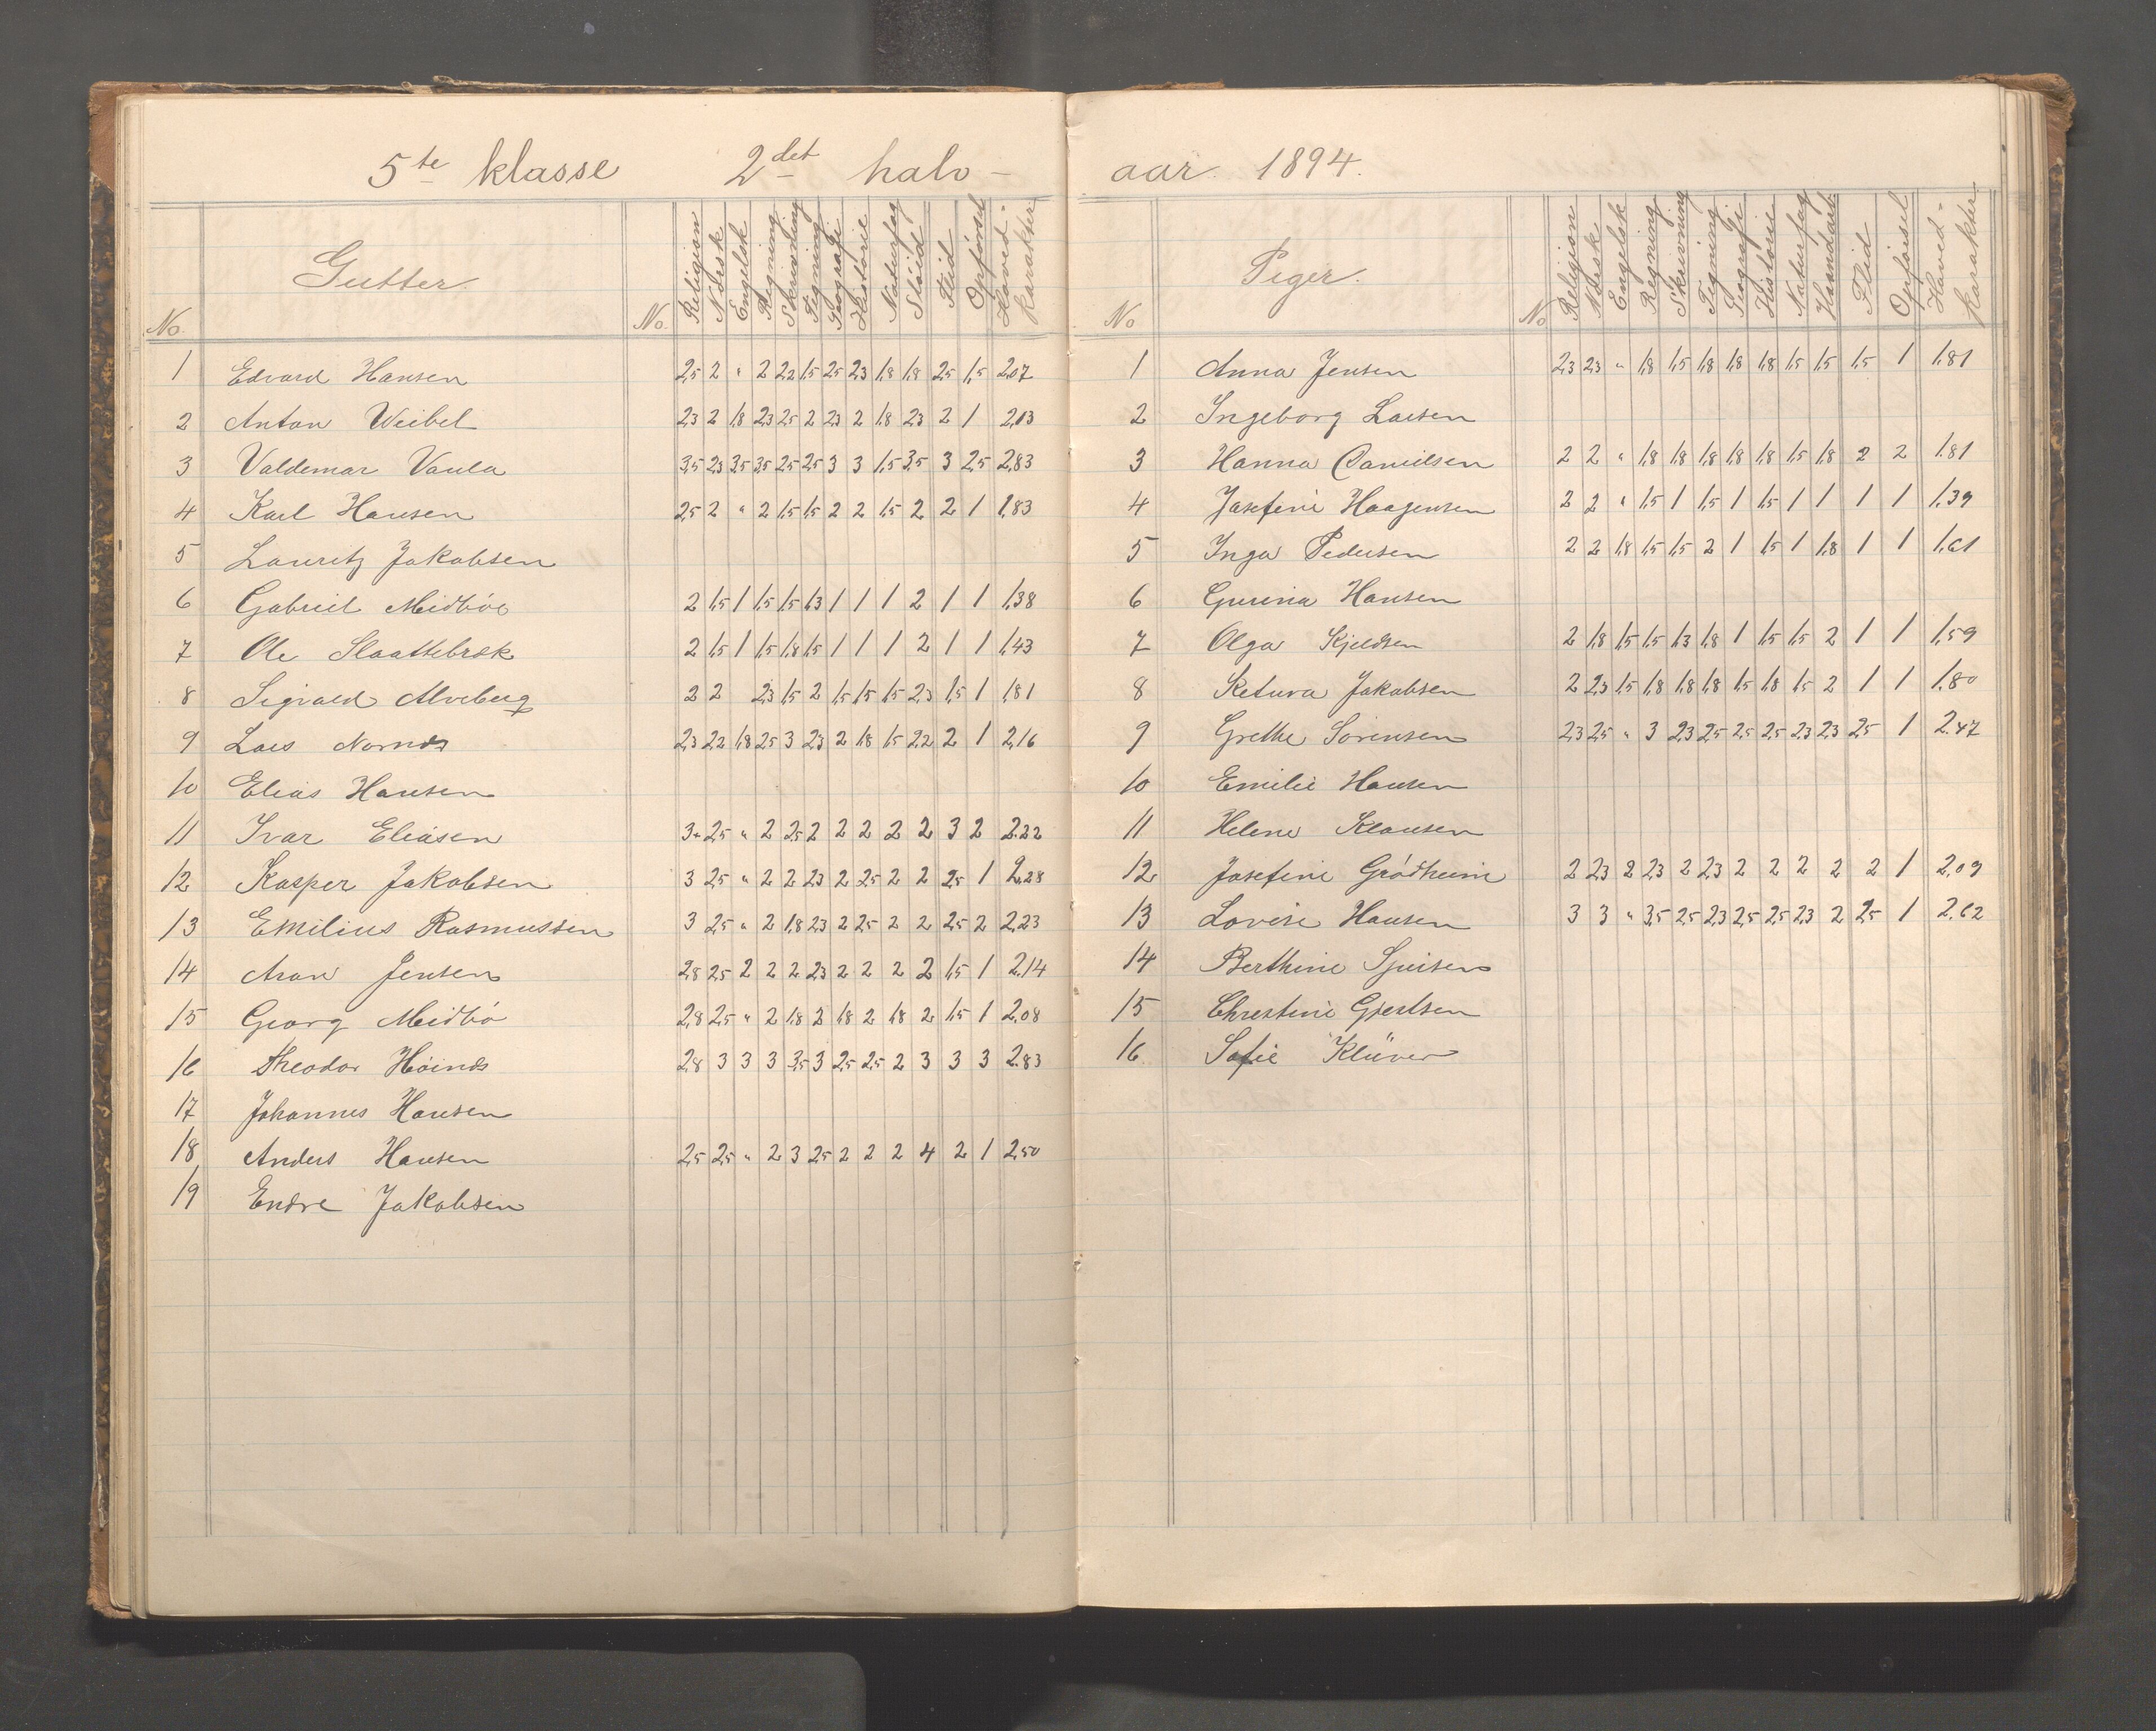 5te klasse 2det halv-
Gutter
No. No. Religion Norsk Engelsk Regning Skrivning Tegning Geografi Historie Naturfag Slöid Flid Opförsel Hoved-karakter
1 Edvard Hansen 2,5 2 " 2 2,2 1,5 2,5 2,3 1,8 1,8 2,5 1,5 2,07
2 Anton Weibel 2,3 2 1,8 2,3 2,5 2 2,3 2 1,8 2,3 2 1 2,03
3 Valdemar Vaula 3,5 2,3 3,5 3,5 2,5 2,5 3 3 1,5 3,5 3 2,5 2,83
4 Karl Hansen 2,5 2 " 2 1,5 1,5 2 2 1,5 2 2 1 1,83
5 Lauritz Jakobsen
6 Gabriel Midböe 2 1,5 1 1,5 1,5 1,3 1 1 1 2 1 1 1,38
7 Ole Slaattebrek 2 1,5 1 1,5 1,8 1,5 1 1 1 2 1 1 1,43
8 Sigvald Alveberg 2 2 2,3 1,5 2 1,5 1,5 1,5 2,3 1,5 1 1,81
9 Lars Nornes 2,3 2,2 1,8 2,5 3 2,3 2 1,8 1,5 2,2 2 1 2,16
10 Elias Hansen
11 Ivar Eliasen 3 2,5 " 2 2,5 2 2 2 2 2 3 2 2.22
12 Kasper Jakobsen 3 2,5 " 2 2 2,3 2 2,5 2 2 2,5 1 2,28
13 Emilius Rasmussen 3 2,5 " 2 1,8 2,3 2 2,5 2 2 2,5 2 2,23
14 Aron Jensen 2,8 2,5 2 2 2 2,3 2 2 2 2 1,5 1 2.14
15 Georg Midbö 2,8 2,5 " 2 1,8 2 1,8 2 1,8 2 1,5 1 2.08
16 Theodor Höines 2,8 3 3 3 3,5 3 2,5 2,5 2 3 3 3 2.83
17 Johannes Hansen
18 Anders Hansen 2,5 2,5 " 2 3 2,5 2 2 2 4 2 1 2,50
19 Endre Jakobsen
aar 1894.
Piger.
No No Religion Norsk Engelsk Regning Skrivning Tegning Geografi Historie Naturfag Haandarb. Flid Opförsel Hoved-karakter
1 Anna Jensen 2,3 2,3 " 1,8 1,5 1,8 1,8 1,8 1,5 1,5 1,5 1 1,81
2 Ingeborg Larsen
3 Hanna Danielsen 2 2 " 1,8 1,8 1,8 1,8 1,8 1,5 1,8 2 2 1.81
4 Josefine Haagensen 2 2 " 1,5 1 1,5 1 1,5 1 1 1 1 1,39
5 Inga Pedersen 2 2 1,8 1,5 1,5 2 1 1,5 1 1,8 1 1 1,61
6 Gurina Hansen
7 Olga Kjeldsen 2 1,8 1,5 1,5 1,3 1,8 1 1,5 1,5 2 1 1 1,59
8 Ketura Jakobsen 2 2,3 1,5 1,8 1,8 1,8 1,5 1,8 1,5 2 1 1 1.80
9 Grethe Sörensen 2,3 2,5 " 3 2,3 2,5 2,5 2,5 2,3 2,3 2,5 1 2.47
10 Emilie Hansen
11 Helene Klausen
12 Josefine Grödheim 2 2,3 2 2,3 2 2,3 2 2 2 2 2 1 2,09
13 Lovise Hansen 3 3 " 3,5 2,5 2,3 2,5 2,5 2,3 2 2,5 1 2.62
14 Berthine
15 Christine Gjertsen
16 Sofie Klüver